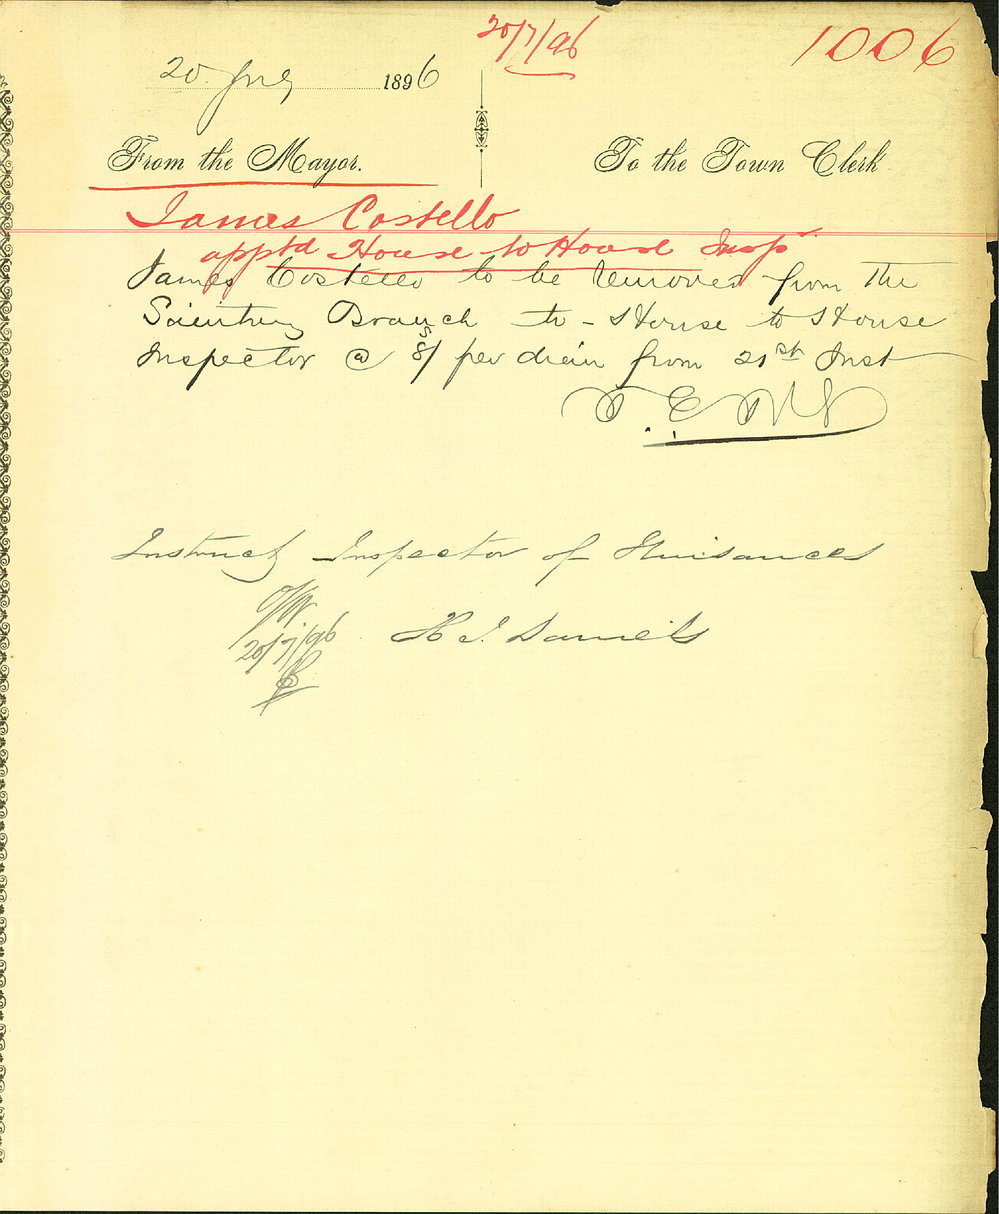 20/7/96
1006
20 July 1896
From the Mayor.
To the Town Clerk
James Costello
apptd House to House Insp
James Costello to be removed from the
Branch to - House to House
Inspector @ 8/ per diem from 21st Inst
Instruct Inspector of Nuisances
20/7/96
H J Daniels